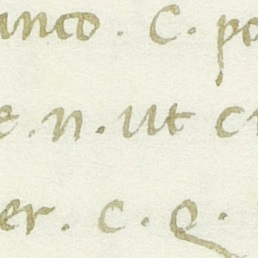 anco. C. po
e. n. ut ci
er. c. Q.